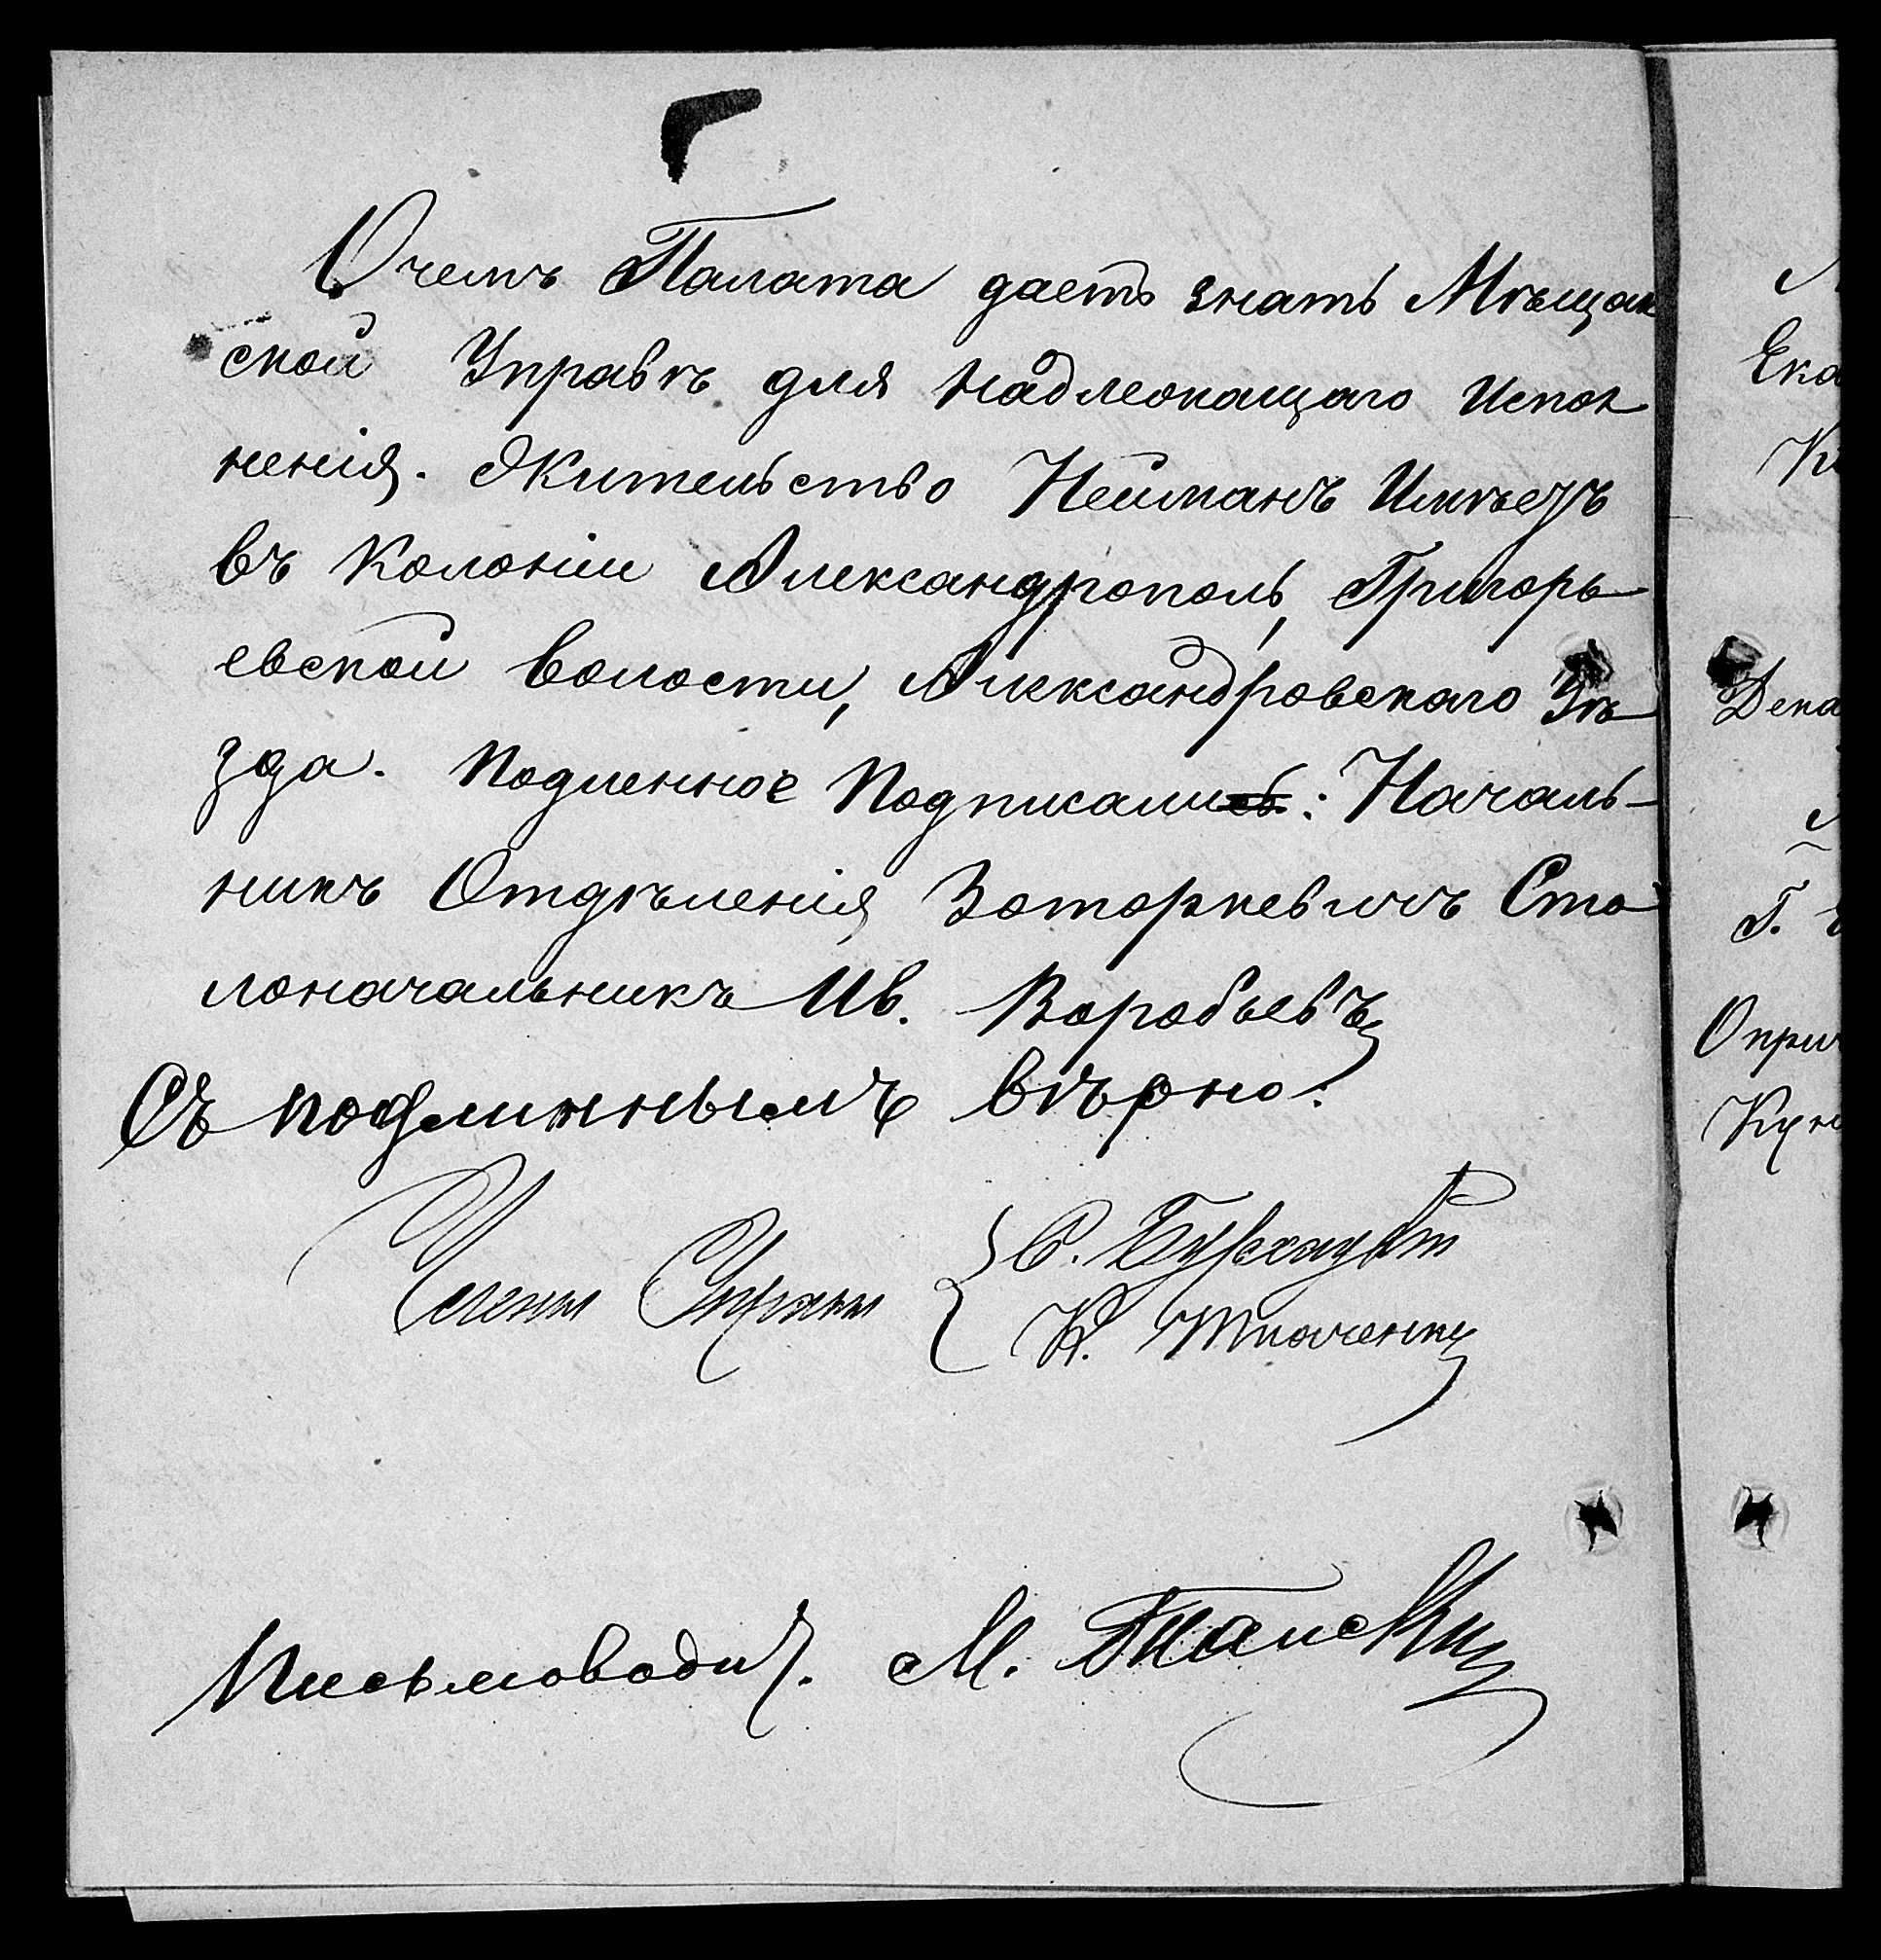 О чемъ Палата даетъ знать Мѣщан
ской Управѣ для надлежащаго испол
ненія. Жительство Нейманъ имѣетъ
въ колоніи Александрополь, Григорь
евской волости, Александровскаго Уѣ
зда. Подленное подписали: Началь-
никъ Отдѣленія Заторкевичъ Сто
лоначальникъ Ив. Воробьевъ
Съ подлиннымъ вѣрно:
Члены Управы
К. Ткаченко
Письмоводит. М.
Ека
Дека
Г.
Оприч
Куп